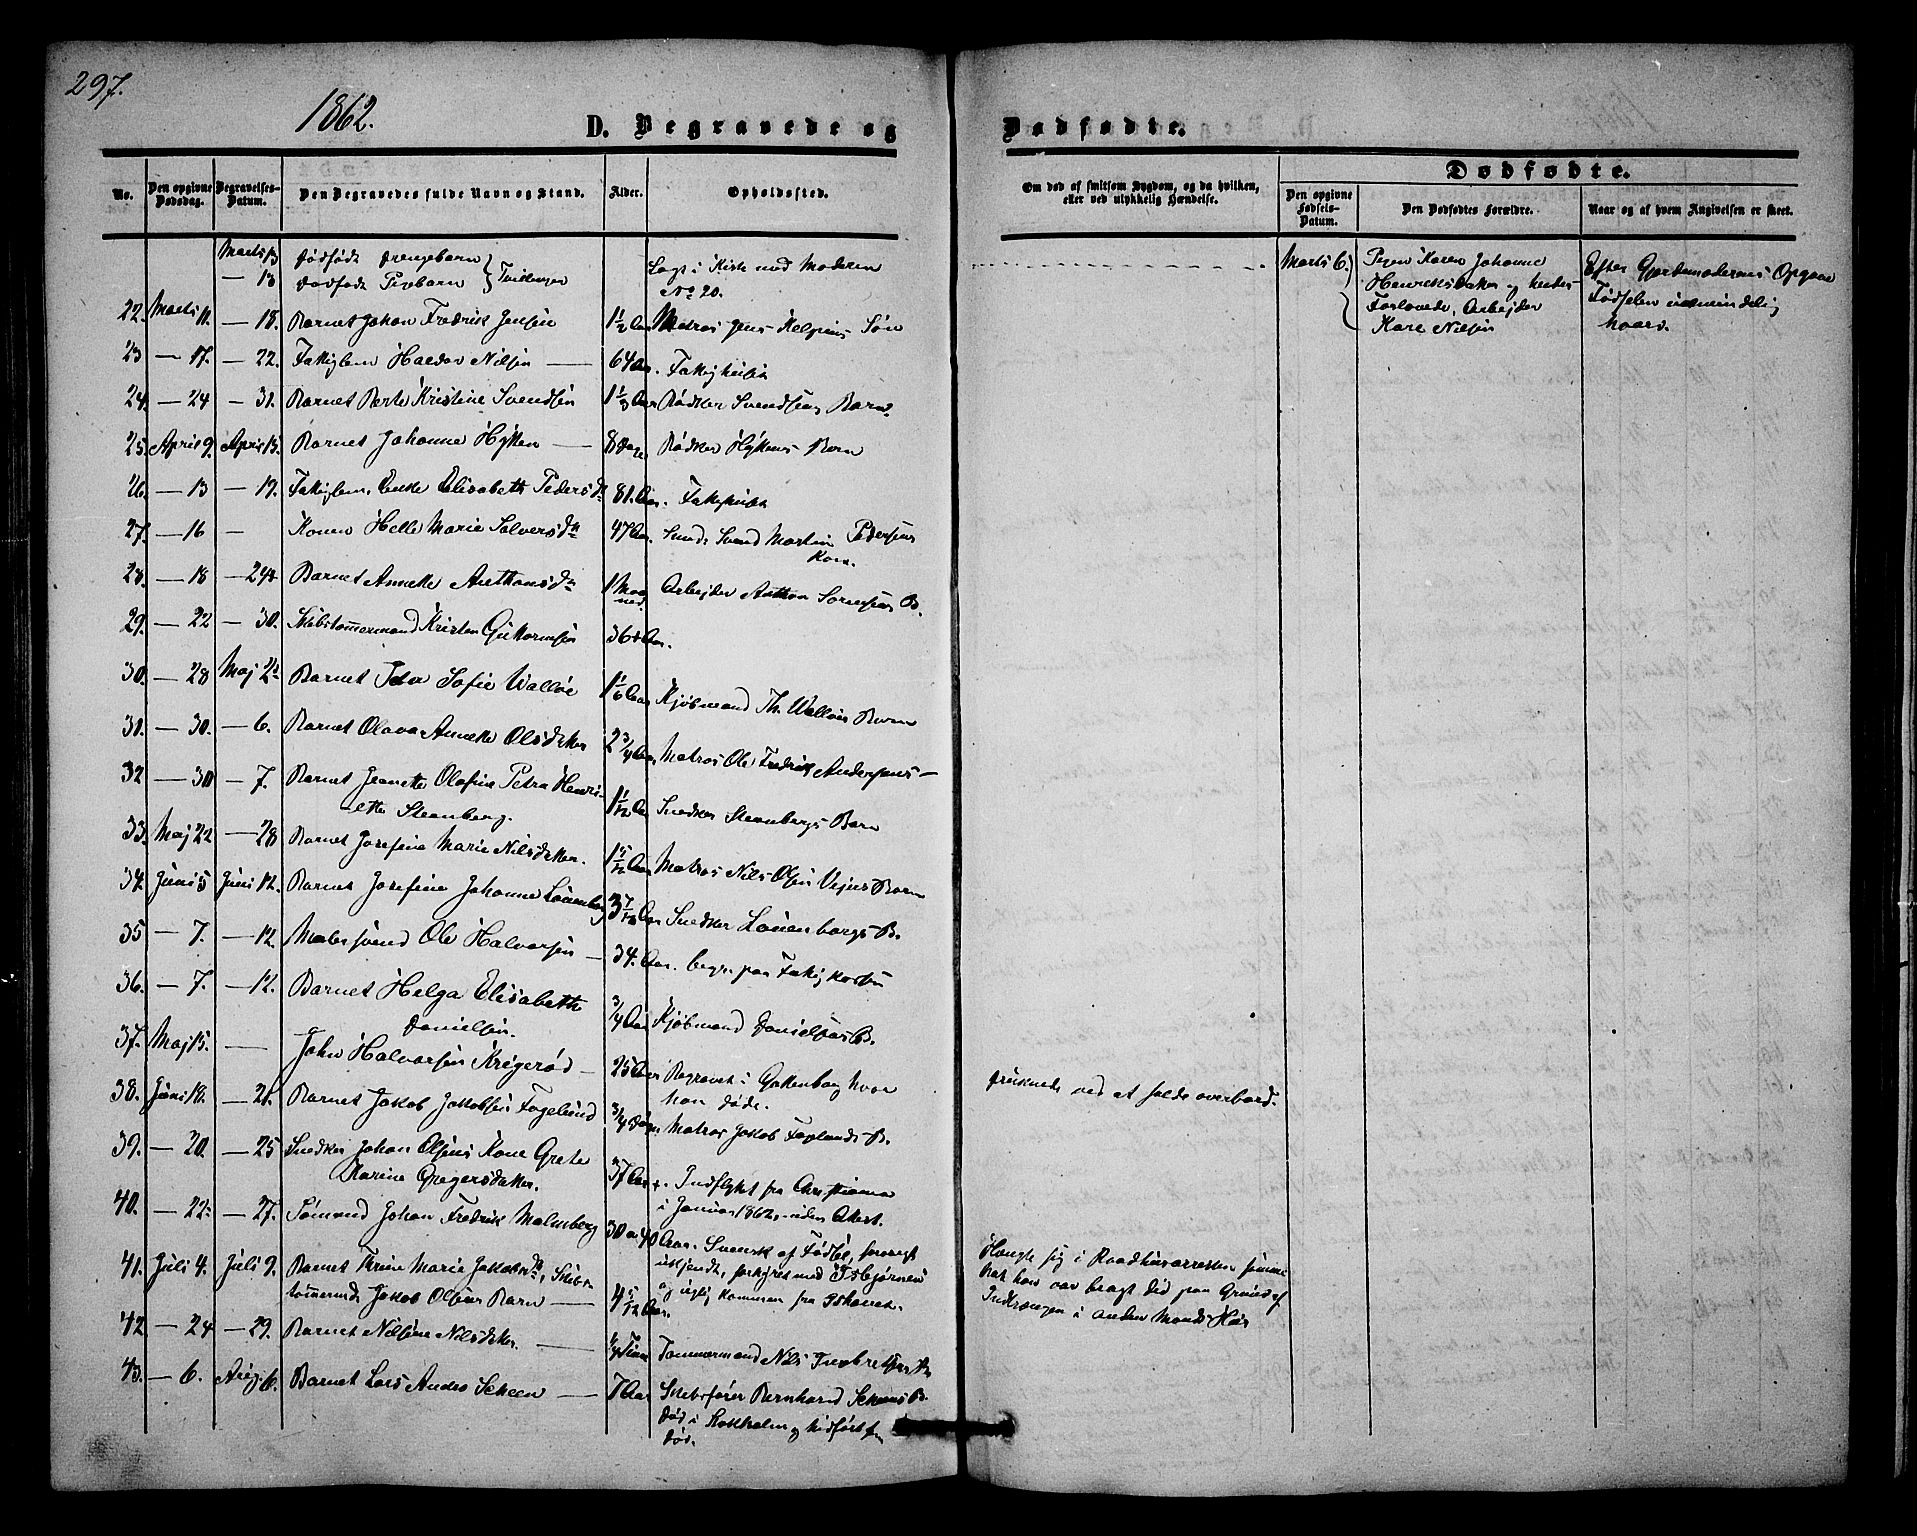 297.
1862.
D. Begravede og
Dødfødte.
No.
Den opgivne Dødsdag.
Begravelses-Datum.
Den Begravedes fulde Navn og Stand.
Alder.
Opholdssted.
Om død af smitsom Sygdom, og da hvilken, eller ved ulykkelig Hændelse.
Dødfødte.
Den opgivne Fødsels-Datum.
Den Dødfødtes Forældre.
Naar og af hvem Angivelsen er skeet.
Marts 13 Dødfødt Drengebarn
— 13 Dødfødt Pigebarn } Tvillinger Lagt i Kiste med Moderen No 20.
Marts 6. Pigen Karen Johanne
Henriksdatter og hendes
Forlovede, Arbejder
Kare Nilsen
Efter Gjordemoderens Opgave
Fødselen ualmindelig
haard.
22. Marts 11. — 18. Barnet Johan Fredrik Jensen 1½ Aar Matros Jens Søn
23 — 17. — 22. Fattiglem Halvor Nilsen — 64 Aar. Fattighuset
24. — 24 — 31. Barnet Berte Kristine Svendsen 1⅓ Aar Bødker Svendsens Barn
25. April 9. April 15. Barnet Johanne Hytten — 8 Dage Bødker Hyttens Barn
26. — 13 — 19. Fattiglem, Enke Elisabeth Pedersdtr 81. Aar. Fattighuset
27. — 16 — Konen Helle Marie Salvesdtr 47 Aar. Svend Martin Pedersens
Kone.
28. — 18 — 24 Barnet Anneke Anthonsdtr 1 Maaned. Arbejder Anthon Sørensens B.
29. — 22 — 30. Skibstømmermand Kristen Guttormsen 36 Aar.
30. — 28 Maj 2 Barnet Sofie Walløe 1 1/6 Aar Kjøbmand Th. Walløes Barn
31. — 30. — 6. Barnet Olava Anneke Olsdatter 2 3/4 Aar Matros Ole Fredrik Andersens —
32 — 30 — 7. Barnet Jeanette Olafine Petra Henri-
ette Steenberg. 1 1/12 Aar Snedker Steenbergs Barn
33. Maj 22 — 28 Barnet Josefine Marie Nilsdatter. 1 5/12 Aar Matros Nils Olsen Vejes Barn
34. Juni 5 Juni 12. Barnet Josefine Johanne Louenborg 3 7/12 Aar Snedker Louenborgs B.
35 — 7. — 12. Malersvend Ole Halvorsen — 34. Aar. begr. paa Fattigkosten
36. — 7. — 12. Barnet Helga Elisabeth
Danielsen. 3/4 Aar Kjøbmand Danielsens B.
37. Maj 15. — John Halvorsen Krøgerød — 25 Aar Begravet i Gøteborg hvor
han døde. Druknede ved at falde overbord.
38. Juni 18. — 21. Barnet Jakob Jakobsen Fogelund 3/4 Matros Jakob Foglunds B.
39. — 20. — 25 Snedker Johan Olsens Kone Grete
Karine Gregersdatter. 37 Aar. Indflyttet fra Christiania
i Januar 1862, uden Attest.
40. — 22 — 27. Sømand Johan Fredrik Malmberg 30 a 40 Aar. Svensk af Fødsel, forøvrigt
ukjendt, forhyret med Isbjørnen
og nylig kommen fra Ishavet.
Hængte sig i Raadhusarresten
hat han var bragt did paa Grund af
Indtrængen i anden Mands Hus
41. Juli 4. Juli 9. Barnet Thrine Marie Jakobsdtr, Skibs-
tømmermd. Jakob Olsens Barn — 4 5/12 Aar.
42. — 24 — 29. Barnet Nilsine Nilsdatter. — 1/4 Time Tømmermand Nils
43. — 6. Aug. 6. Barnet Lars Andre Scheen — 7 Aar Skibsfører Bernhard Scheens B.
død i Stokholm og hidført
død.